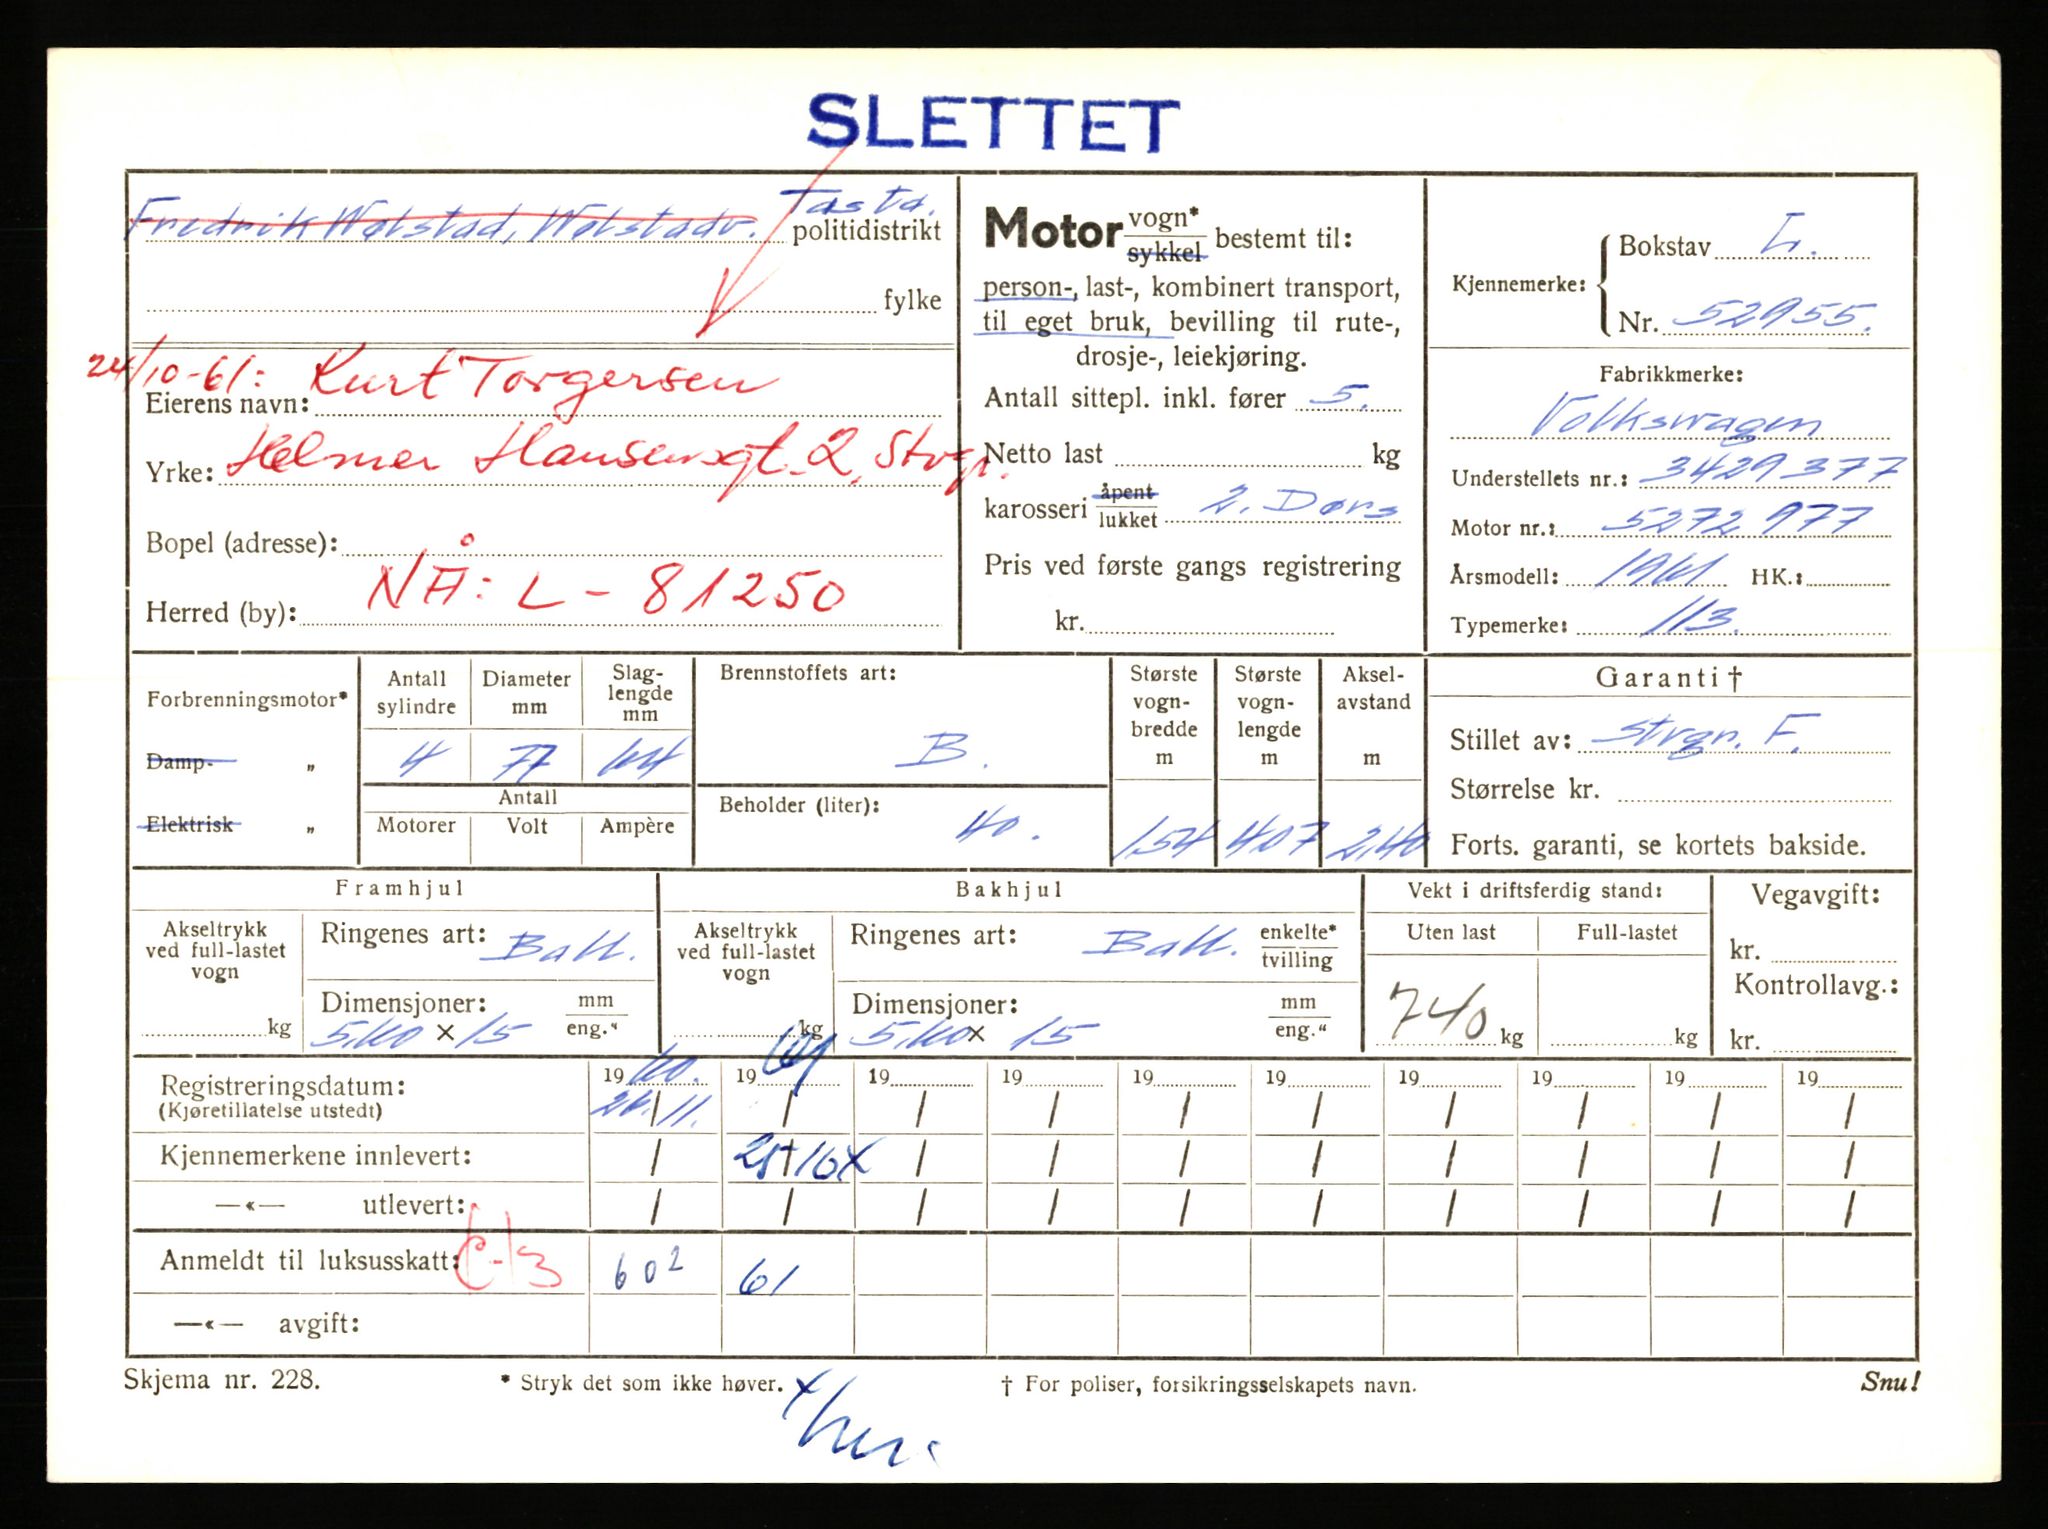 SLETTET
Fredrik Wølstad, Wølstadv. Tasta. politidistrikt
fylke
24/10-61: Kurt Torgersen
Eierens navn:
Yrke: Helmer Hansensgt. 2, Stvgr.
Bopel (adresse):
NÅ: L - 81250
Herred (by):
Motor vogn* sykkel bestemt til:
person-, last-, kombinert transport,
til eget bruk, bevilling til rute-,
drosje-, leiekjøring.
Antall sittepl. inkl. fører 5.
Netto last kg
karosseri åpent lukket 2. Dørs
Pris ved første gangs registrering
kr.
Kjennemerke: Bokstav L.
Nr. 52955.
Fabrikkmerke:
Volkswagen
Understellets nr.: 3429377
Motor nr.: 5272977
Årsmodell: 1961 HK.:
Typemerke: 113.
Forbrenningsmotor*
Damp- „
Elektrisk „
Antall sylindre Diameter mm Slag-lengde mm
4 77 64
Antall
Motorer Volt Ampère
Brennstoffets art:
B.
Beholder (liter):
40.
Største vogn-bredde m
1,54
Største vogn-lengde m
4.07
Aksel-avstand m
2,40
Garanti †
Stillet av: Stvgr. F.
Størrelse kr.
Forts. garanti, se kortets bakside.
Framhjul
Akseltrykk ved full-lastet vogn
kg
Ringenes art: Ball.
Dimensjoner: mm eng."
5,60 × 15
Bakhjul
Akseltrykk ved full-lastet vogn
kg
Ringenes art: Ball. enkelte* tvilling
Dimensjoner: mm eng."
5,60 × 15
Vekt i driftsferdig stand:
Uten last Full-lastet
740 kg kg
Vegavgift:
kr.
Kontrollavg.:
kr.
Registreringsdatum: 1960. 1961 19 19 19 19 19 19 19 19
(Kjøretillatelse utstedt) 26/11. / / / / / / / / /
Kjennemerkene innlevert: / 25/10 x / / / / / / / /
—«— utlevert: / / / / / / / / / /
Anmeldt til luksusskatt: 602 61
—«— avgift:
Skjema nr. 228. * Stryk det som ikke høver. † For poliser, forsikringsselskapets navn. Snu!